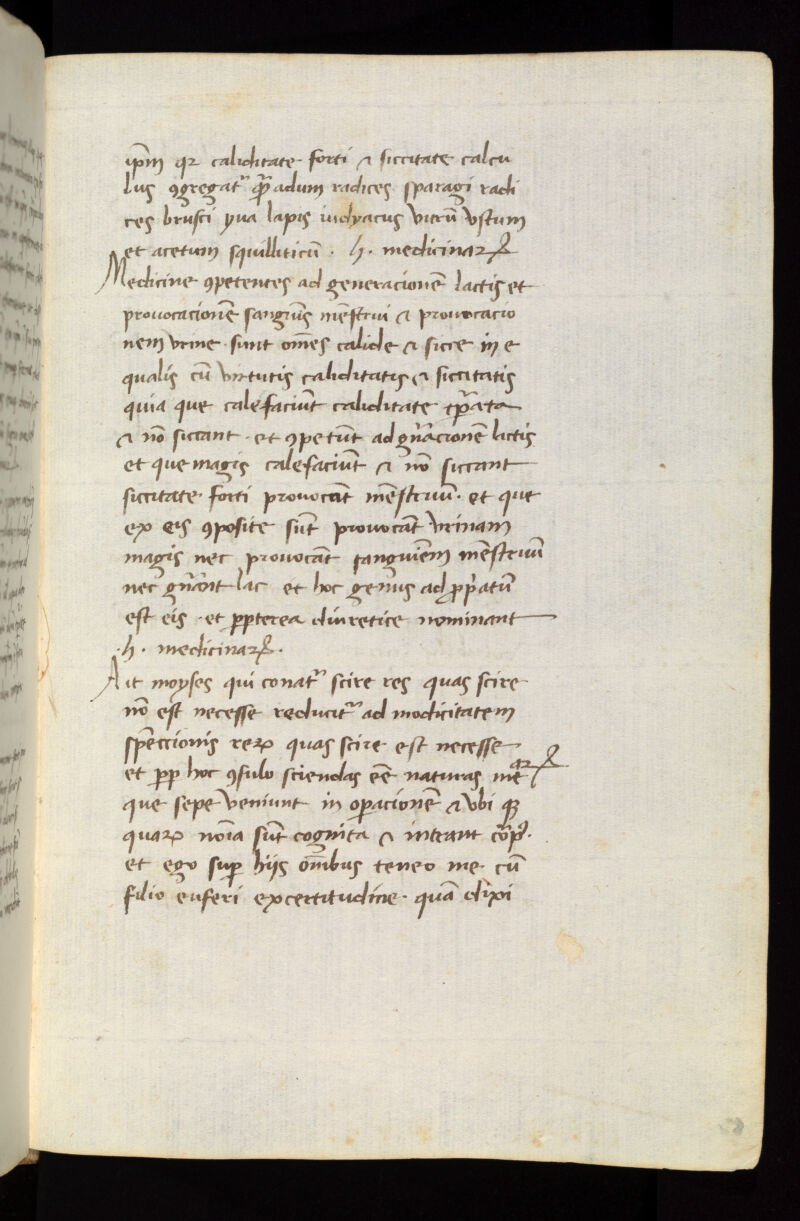 ip̄m qꝛ caliditate forti ⁊ siccitate calcu
lus ꝯgregatᷣ qd̄ adum radices sparagi radi
ces brusci yua lapis iudyacus vitrū vstum
et acetum squilliticū . h. medicinaꝝ
Medicine ꝯpetentes ad generacionē lactis et
prouocacionē sangnīs mēstrui ⁊ prouocacio
nem vrine sunt om̄es calide ⁊ sicce in e
qualis cū virtutis caliditatis ⁊ siccitatis
quia que calefaciūt caliditate tp̄ata
⁊ nō siccant . et ꝯpetūt ad gn̄acionē lactis
et que magis calefaciūt ⁊ nō siccant
siccitate forti prouocāt mēstruū . et que
ex eis ꝯposite sūt prouocāt vrinam
magis nec prouocāt sanguīem mēstruū
nec gn̄ant lac et hoc genus ad prop̄atū
est eis . et ꝓpterea diuretice nominant
. h . medicinaꝝ .
Ait moyses qui conatᷣ scire res quas scire
nō est necesse reducitᷣ ad modicitatem
speccionis reꝝ quas scire est necesse
et ꝓp hoc ꝯsulo sciendas eē naturas meaꝝ
que sepe veniunt in oꝑacionē ⁊ vbi qꝫ
quaꝝ noīa sūt cognita ⁊ intrant
et ego suꝑ hijs om̄ibus teneo me cū
filio euferi excertitudine . quā dixi